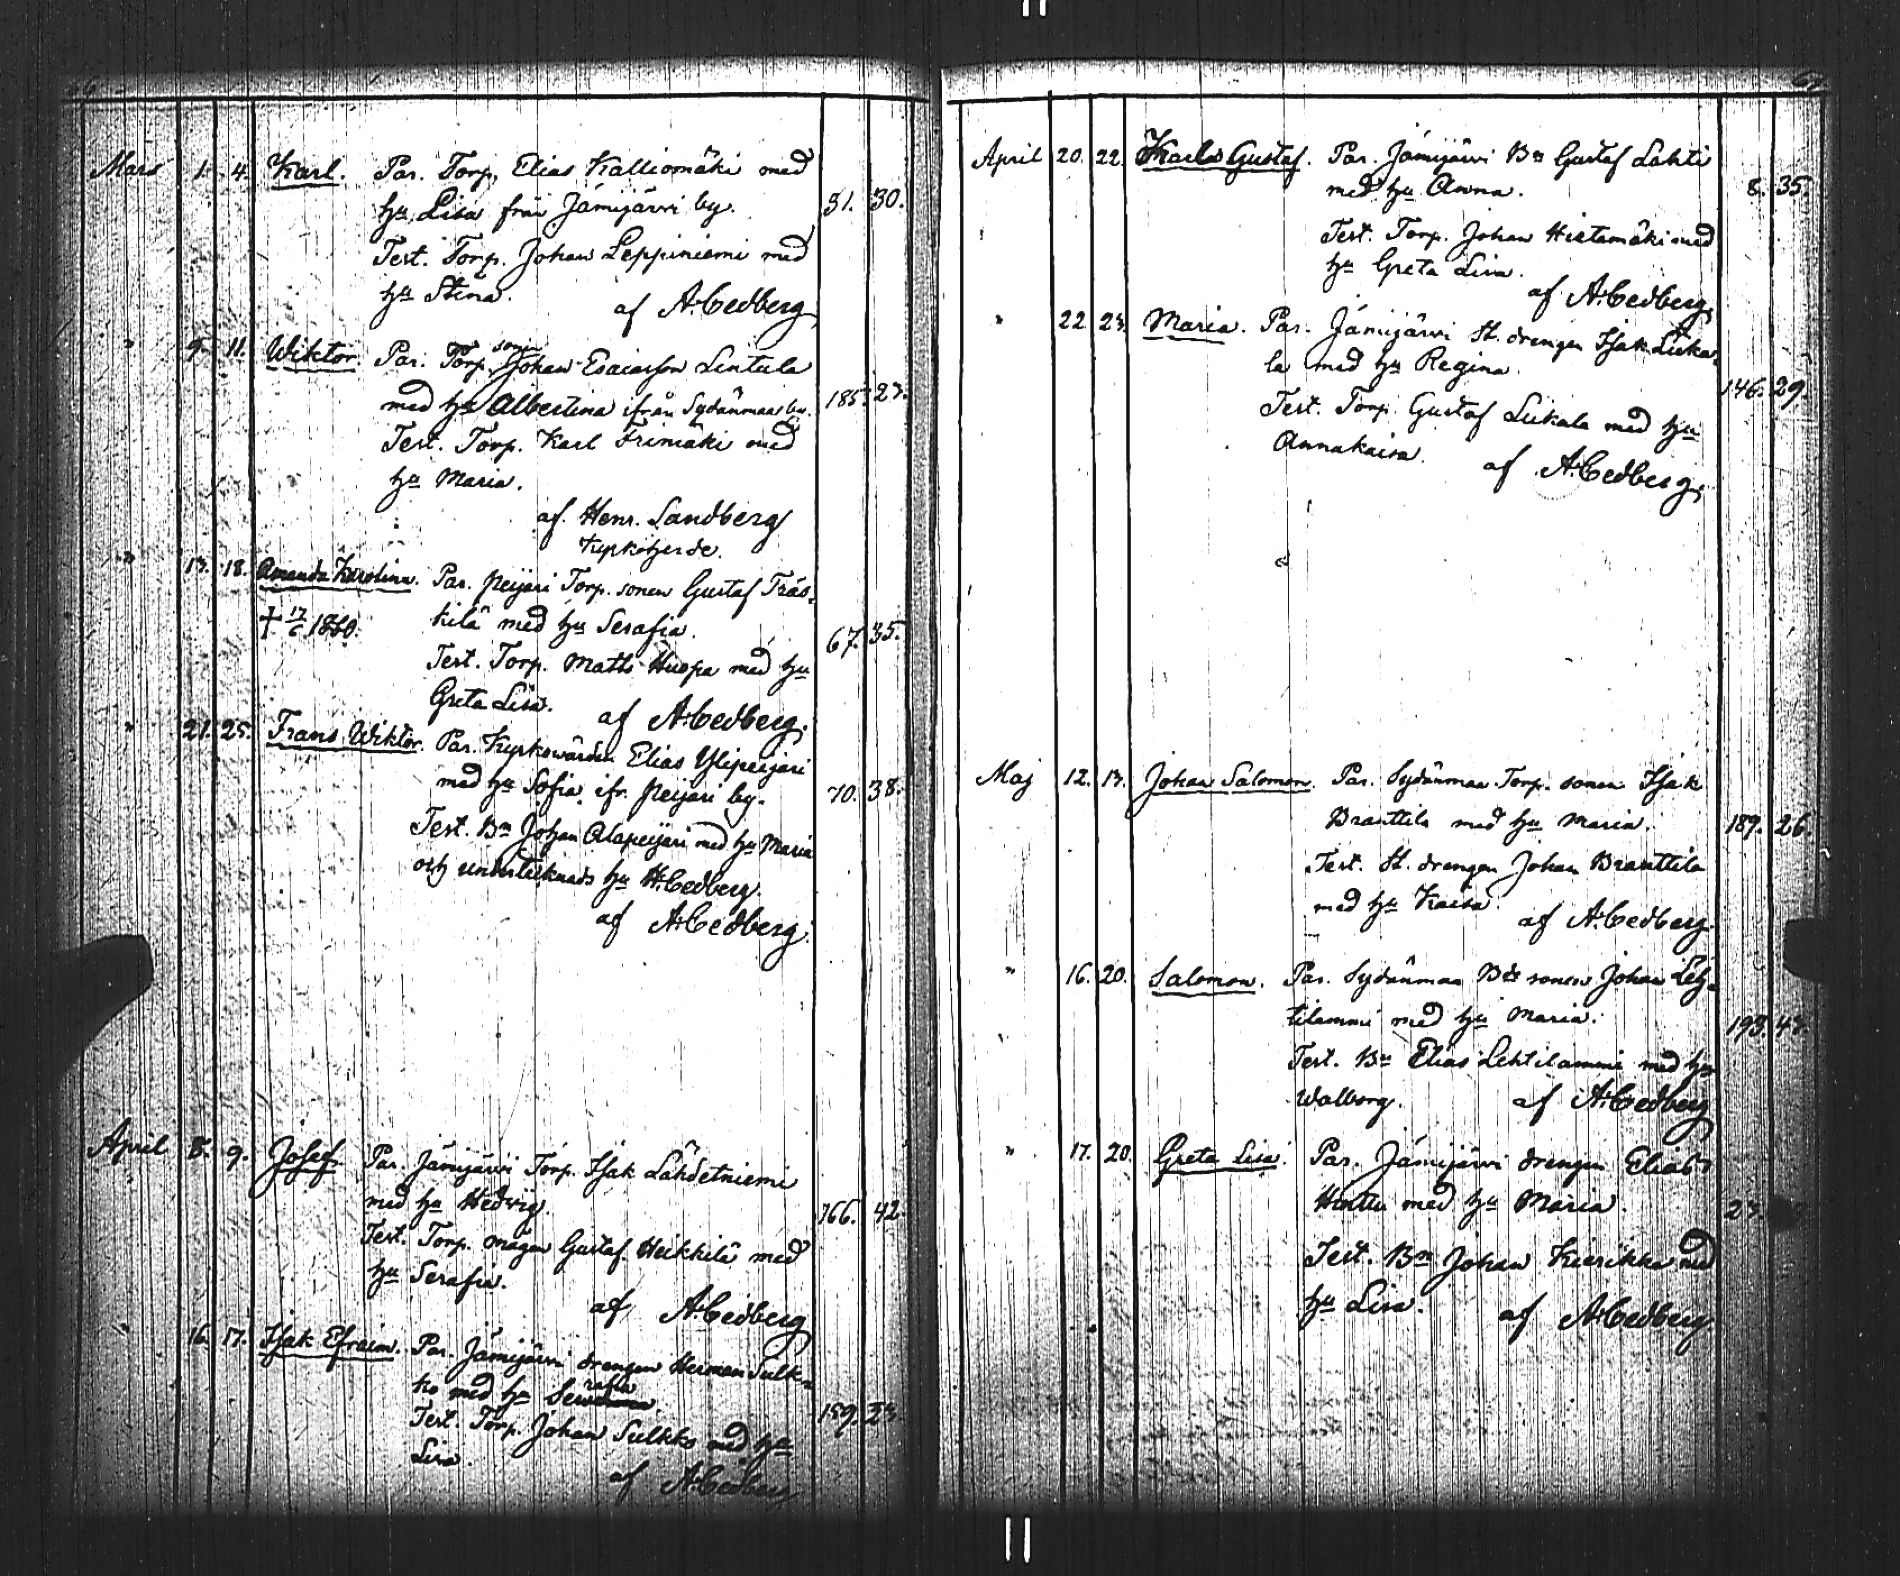 Mars 1. 4. Karl. Par. Torp. Elias Kalliomäki med
hu Lisa från Jämijärvi by. 51. 30.
Test. Torp. Johan Leppiniemi med
hu Stina.
af A. Cedberg
" 9. 11. Wiktor Par. Torp. sonen Johan Esaiasson Lintula
med hu Albertina ifrån Sydänmaa by. 185. 23.
Test. Torp. Karl Frimäki med
hu Maria.
af. Henr. Sandberg
Kyrkoherde.
" 13. 18. Amanda Karolina. Par. Peijari Torp. sonen Gustaf Träs-
† 17/6 1880. kilä med hu Serafia. 67. 35.
Test. Torp. Matts Huopa med hu
Greta Lisa. af A. Cedberg.
" 21. 25. Frans Wiktor. Par. Kyrkowärden Elias Ylipeijari
med hu Sofia, ifr. Peijari by. 70. 38.
Test. Bn Johan Alapeijari med hu Maria
och undertecknads hu H. Cedberg.
af A. Cedberg.
April 8. 9. Josef. Par. Jämijärvi Torp. Isak Lähdetniemi
med hu Hedvig. 166. 42.
Test. Torp. mågen Gustaf Heikkilä med
hu Serafia.
af A. Cedberg
" 16. 17. Isak Efraim. Par. Jämijärvi drengen Herman Sulk-
ko med hu Serafia. 159. 23.
Test. Torp. Johan Sulkko med hu
Lisa.
af A. Cedberg
April 20. 22. Karl Gustaf. Par. Jämijärvi Bn Gustaf Lahti
med hu Anna. 8. 35.
Test. Torp. Johan Hietamäki med
hu Greta Lisa.
af A. Cedberg,
" 22. 23. Maria. Par. Jämijärvi St. drengen Isak Liika-
la med hu Regina. 146. 29.
Test. Torp. Gustaf Liikala med hu
Annakaisa. af A. Cedberg,
Maj 12. 13. Johan Salomon. Par. Sydänmaa Torp. sonen Isak
Branttila med hu Maria. 189. 26.
Test. St. drengen Johan Branttila
med hu Kaisa. af A. Cedberg.
" 16. 20. Salomon. Par. Sydänmaa Bde sonen Johan Leh-
tilammi med hu Maria. 193. 43.
Test. Bn Elias Lehtilammi med hu
Walborg. af A. Cedberg
" 17. 20. Greta Lisa. Par. Jämijärvi drengen Elias
Hinttu med hu Maria. 23.
Test. Bn Johan Kierikka med
hu Lisa. af A. Cedberg.